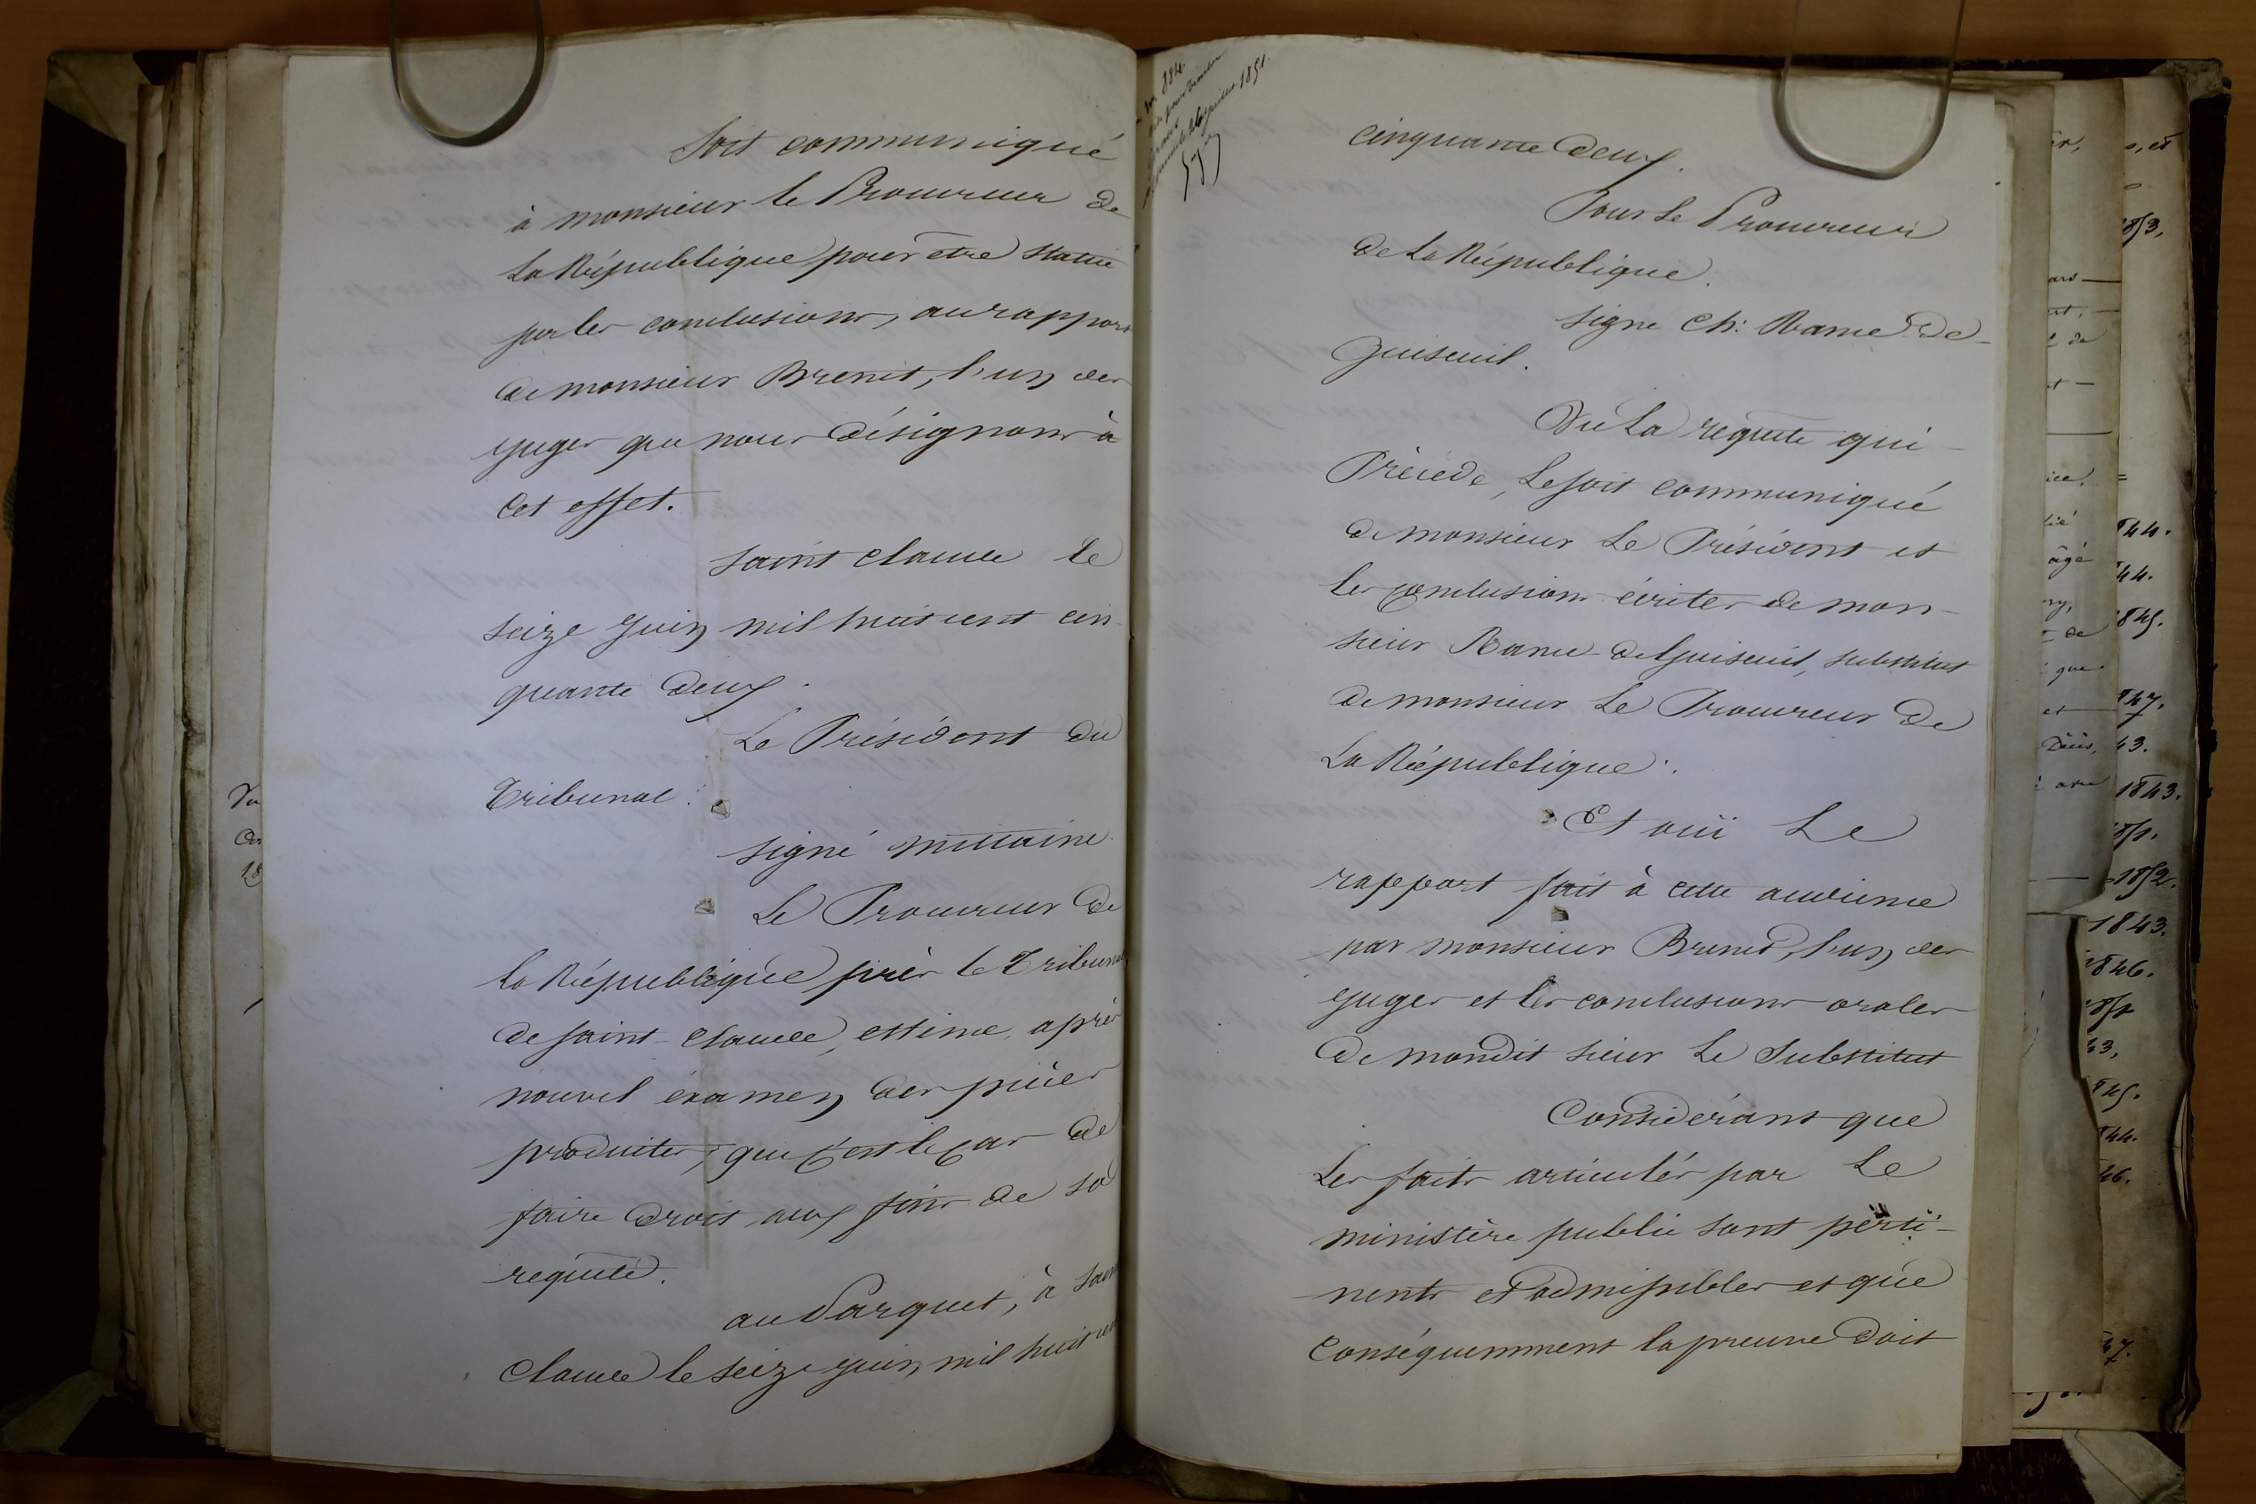 Soit communiqué
à monsieur le Procureur de
la République pour être statué
sur les conclusions, au rapport
de monsieur Brenet, l'un des
juges que nous désignons à
cet effet.
Saint Claude le
seize juin mil huit cent cin
quante deux.
Le Président du
Tribunal.
signé Mittaine
Le Procureur de
la République près le Tribunal
de Saint-Claude, estime, après
nouvel examen des pièces
produites, que c'est le cas de
faire droit aux fins de sa
requête.
au Parquet, à Saint
Claude le seize juin mil huit cent
cinquante deux.
Pour le Procureur
de la République.
signé Ch: Rame de
Guiseuil.
Vu la requête qui
Précède, le soit communiqué
de monsieur le Président et
les conclusions écrites de mon-
sieur Rame-de Guiseuil, substitut
de monsieur le Procureur de
la République.
Et ouï le
rapport fait à cette audience
par monsieur Brenet, l'un des
juges et les conclusions orales
de mondit sieur le Substitut
Considérant que
les faits articulés par le
ministère public sont perti-
nents et admissibles et que
conséquemment la preuve doit